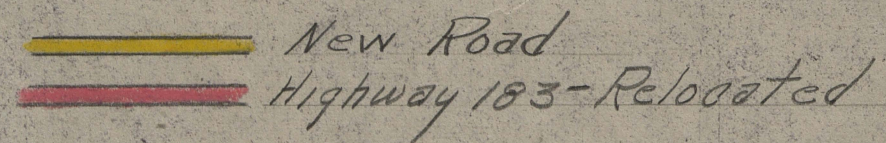 New Road
Highway 183-Relocated